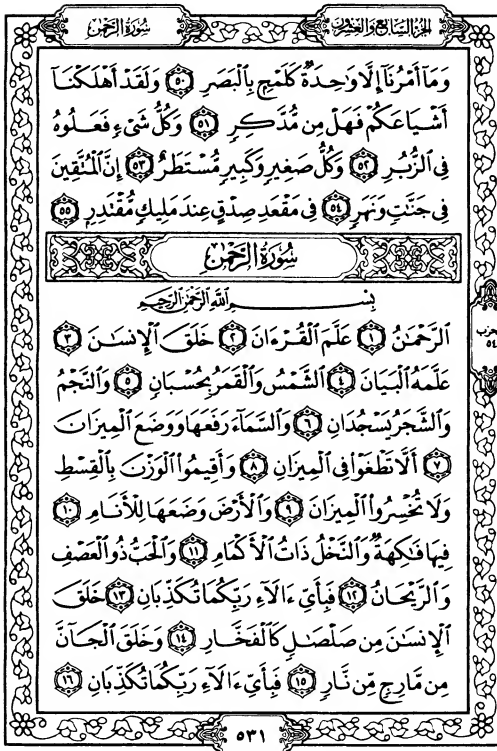 سُورَةُ الرَّحْمٰن
الجُزءُ السَّابِعُ وَالعِشرُونَ
وَمَآ أَمْرُنَآ إِلَّا وَٰحِدَةٌ كَلَمْحٍۭ بِٱلْبَصَرِ ٥٠ وَلَقَدْ أَهْلَكْنَآ
أَشْيَاعَكُمْ فَهَلْ مِن مُّدَّكِرٍ ٥١ وَكُلُّ شَىْءٍ فَعَلُوهُ
فِى ٱلزُّبُرِ ٥٢ وَكُلُّ صَغِيرٍ وَكَبِيرٍ مُّسْتَطَرٌ ٥٣ إِنَّ ٱلْمُتَّقِينَ
فِى جَنَّٰتٍ وَنَهَرٍ ٥٤ فِى مَقْعَدِ صِدْقٍ عِندَ مَلِيكٍ مُّقْتَدِرٍۭ ٥٥
سُورَةُ الرَّحْمٰن
بِسْمِ ٱللَّهِ ٱلرَّحْمَٰنِ ٱلرَّحِيمِ
ٱلرَّحْمَٰنُ ١ عَلَّمَ ٱلْقُرْءَانَ ٢ خَلَقَ ٱلْإِنسَٰنَ ٣
عَلَّمَهُ ٱلْبَيَانَ ٤ ٱلشَّمْسُ وَٱلْقَمَرُ بِحُسْبَانٍ ٥ وَٱلنَّجْمُ
وَٱلشَّجَرُ يَسْجُدَانِ ٦ وَٱلسَّمَآءَ رَفَعَهَا وَوَضَعَ ٱلْمِيزَانَ
٧ أَلَّا تَطْغَوْا۟ فِى ٱلْمِيزَانِ ٨ وَأَقِيمُوا۟ ٱلْوَزْنَ بِٱلْقِسْطِ
وَلَا تُخْسِرُوا۟ ٱلْمِيزَانَ ٩ وَٱلْأَرْضَ وَضَعَهَا لِلْأَنَامِ ١٠
فِيهَا فَٰكِهَةٌ وَٱلنَّخْلُ ذَاتُ ٱلْأَكْمَامِ ١١ وَٱلْحَبُّ ذُو ٱلْعَصْفِ
وَٱلرَّيْحَانُ ١٢ فَبِأَىِّ ءَالَآءِ رَبِّكُمَا تُكَذِّبَانِ ١٣ خَلَقَ
ٱلْإِنسَٰنَ مِن صَلْصَٰلٍ كَٱلْفَخَّارِ ١٤ وَخَلَقَ ٱلْجَآنَّ
مِن مَّارِجٍ مِّن نَّارٍ ١٥ فَبِأَىِّ ءَالَآءِ رَبِّكُمَا تُكَذِّبَانِ ١٦
حزب
٥٤
٥٣١